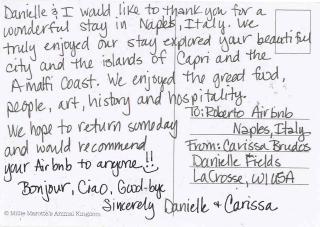 Danielle & I would like to thank you for a
wonderful stay in Naples, Italy. We
truly enjoyed our stay explored your beautiful
city and the islands of Capri and the
Amalfi Coast. We enjoyed the great food,
people, art, history and hospitality.
We hope to return someday
and would recommend
your Airbnb to anyone!!
Bonjour, Ciao, Good-bye
Sincerely Danielle & Carissa
To: Roberto Airbnb
Naples, Italy
From: Carissa Brudos
Danielle Fields
LaCrosse, WI USA
© Millie Marotta's Animal Kingdom